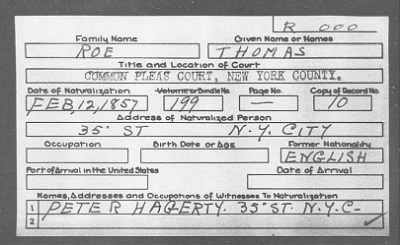 R 000
Family Name Given Name or Names
ROE THOMAS
Title and Location of Court
COMMON PLEAS COURT, NEW YORK COUNTY.
Date of Naturalization Volume or Bundle No. Page No. Copy of Record No.
FEB, 12, 1857 199 — 10
Address of Naturalized Person
35' ST N.Y. CITY
Occupation Birth Date or Age Former Nationality
ENGLISH
Port of Arrival in the United States Date of Arrival
Names, Addresses and Occupations of Witnesses To Naturalization
1 PETER HAGERTY. 35' ST. N.Y.C-
2 ✓